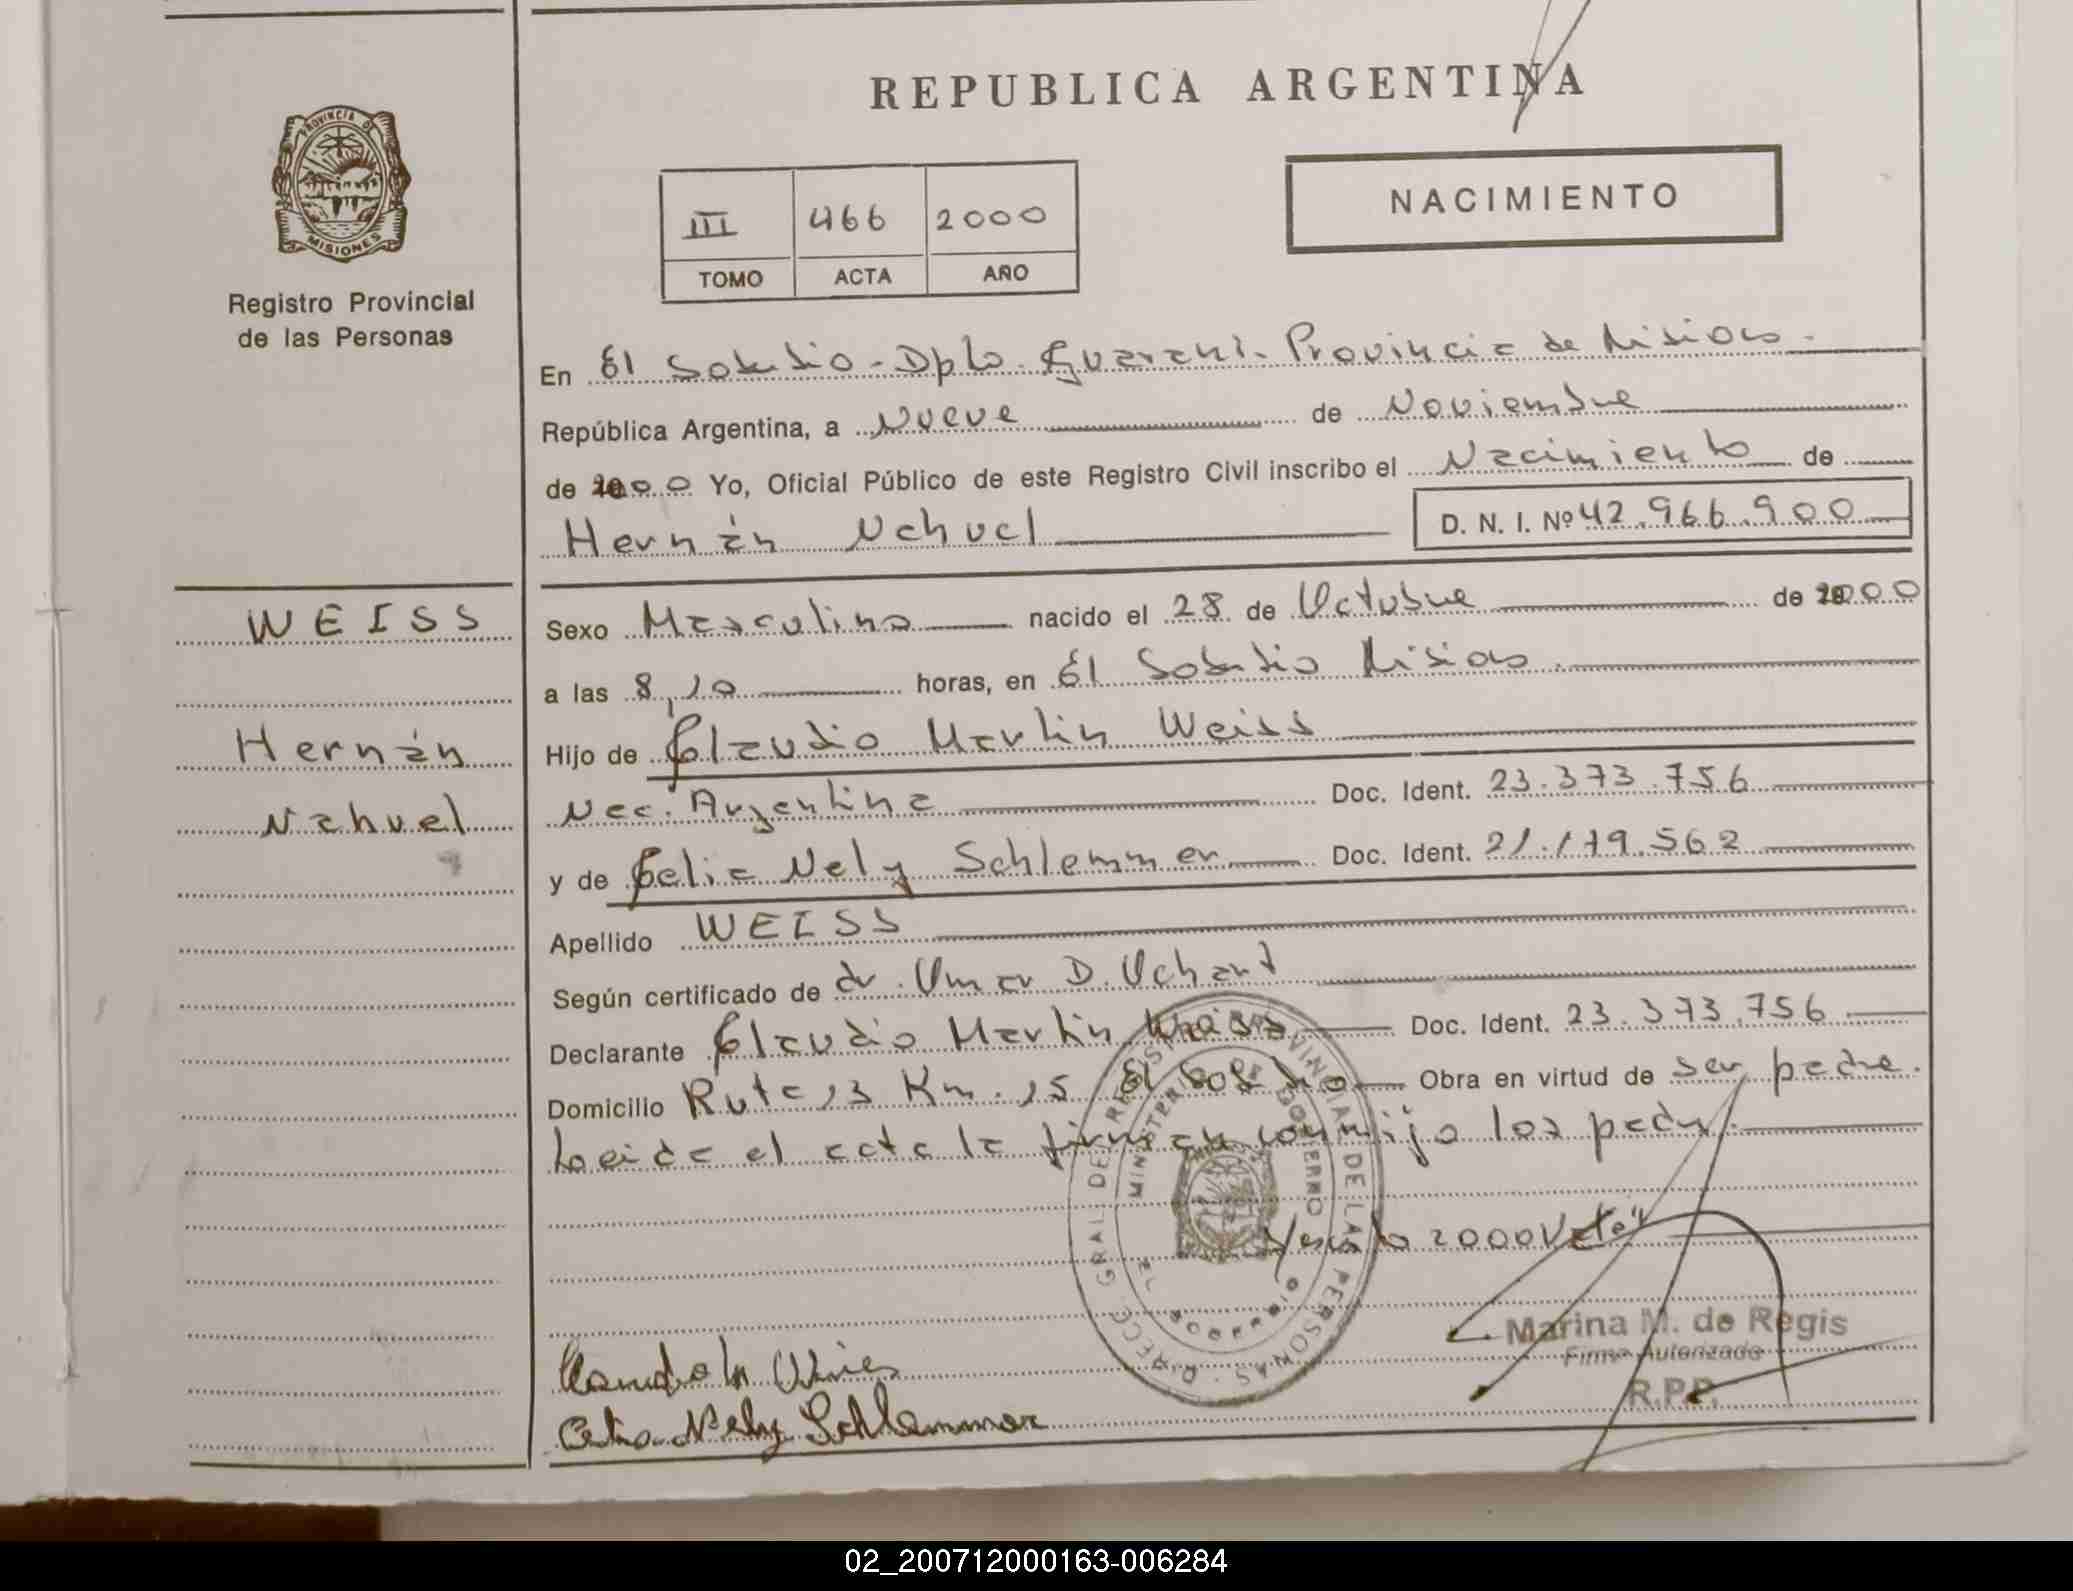 REPUBLICA ARGENTINA
PROVINCIA DE
MISIONES
Registro Provincial
de las Personas
III 466 2000
TOMO ACTA AÑO
NACIMIENTO
En El Soberbio - Dpto. Guarani - Provincia de Misiones -
República Argentina, a Nueve de Noviembre
de 2000 Yo, Oficial Público de este Registro Civil inscribo el Nacimiento de
Hernán Nahuel D. N. I. Nº 42.966.900
WEISS
Hernán
Nahuel
Sexo Masculino nacido el 28 de Octubre de 2000
a las 8,10 horas, en El Soberbio Misiones.
Hijo de Claudio Martin Weiss
Nac. Argentina Doc. Ident. 23.373.756
y de Celia Nely Schlemmer Doc. Ident. 21.179.562
Apellido WEISS
Según certificado de dr. Omar D.
Declarante Claudio Martin Weiss Doc. Ident. 23.373.756
Domicilio Ruta 13 Km. 15 El Soberbio Obra en virtud de ser padre.
Leida el acta la firman conmigo los padres.
2000 Vale"
DIRECC. GRAL. DE REGISTRO PROVINCIAL DE LAS PERSONAS
MINISTERIO DE GOBIERNO
EL SOBERBIO
Marina M. de Regis
Firma Autorizada
R.P.P.
Celia Nely Schlemmer
02_200712000163-006284